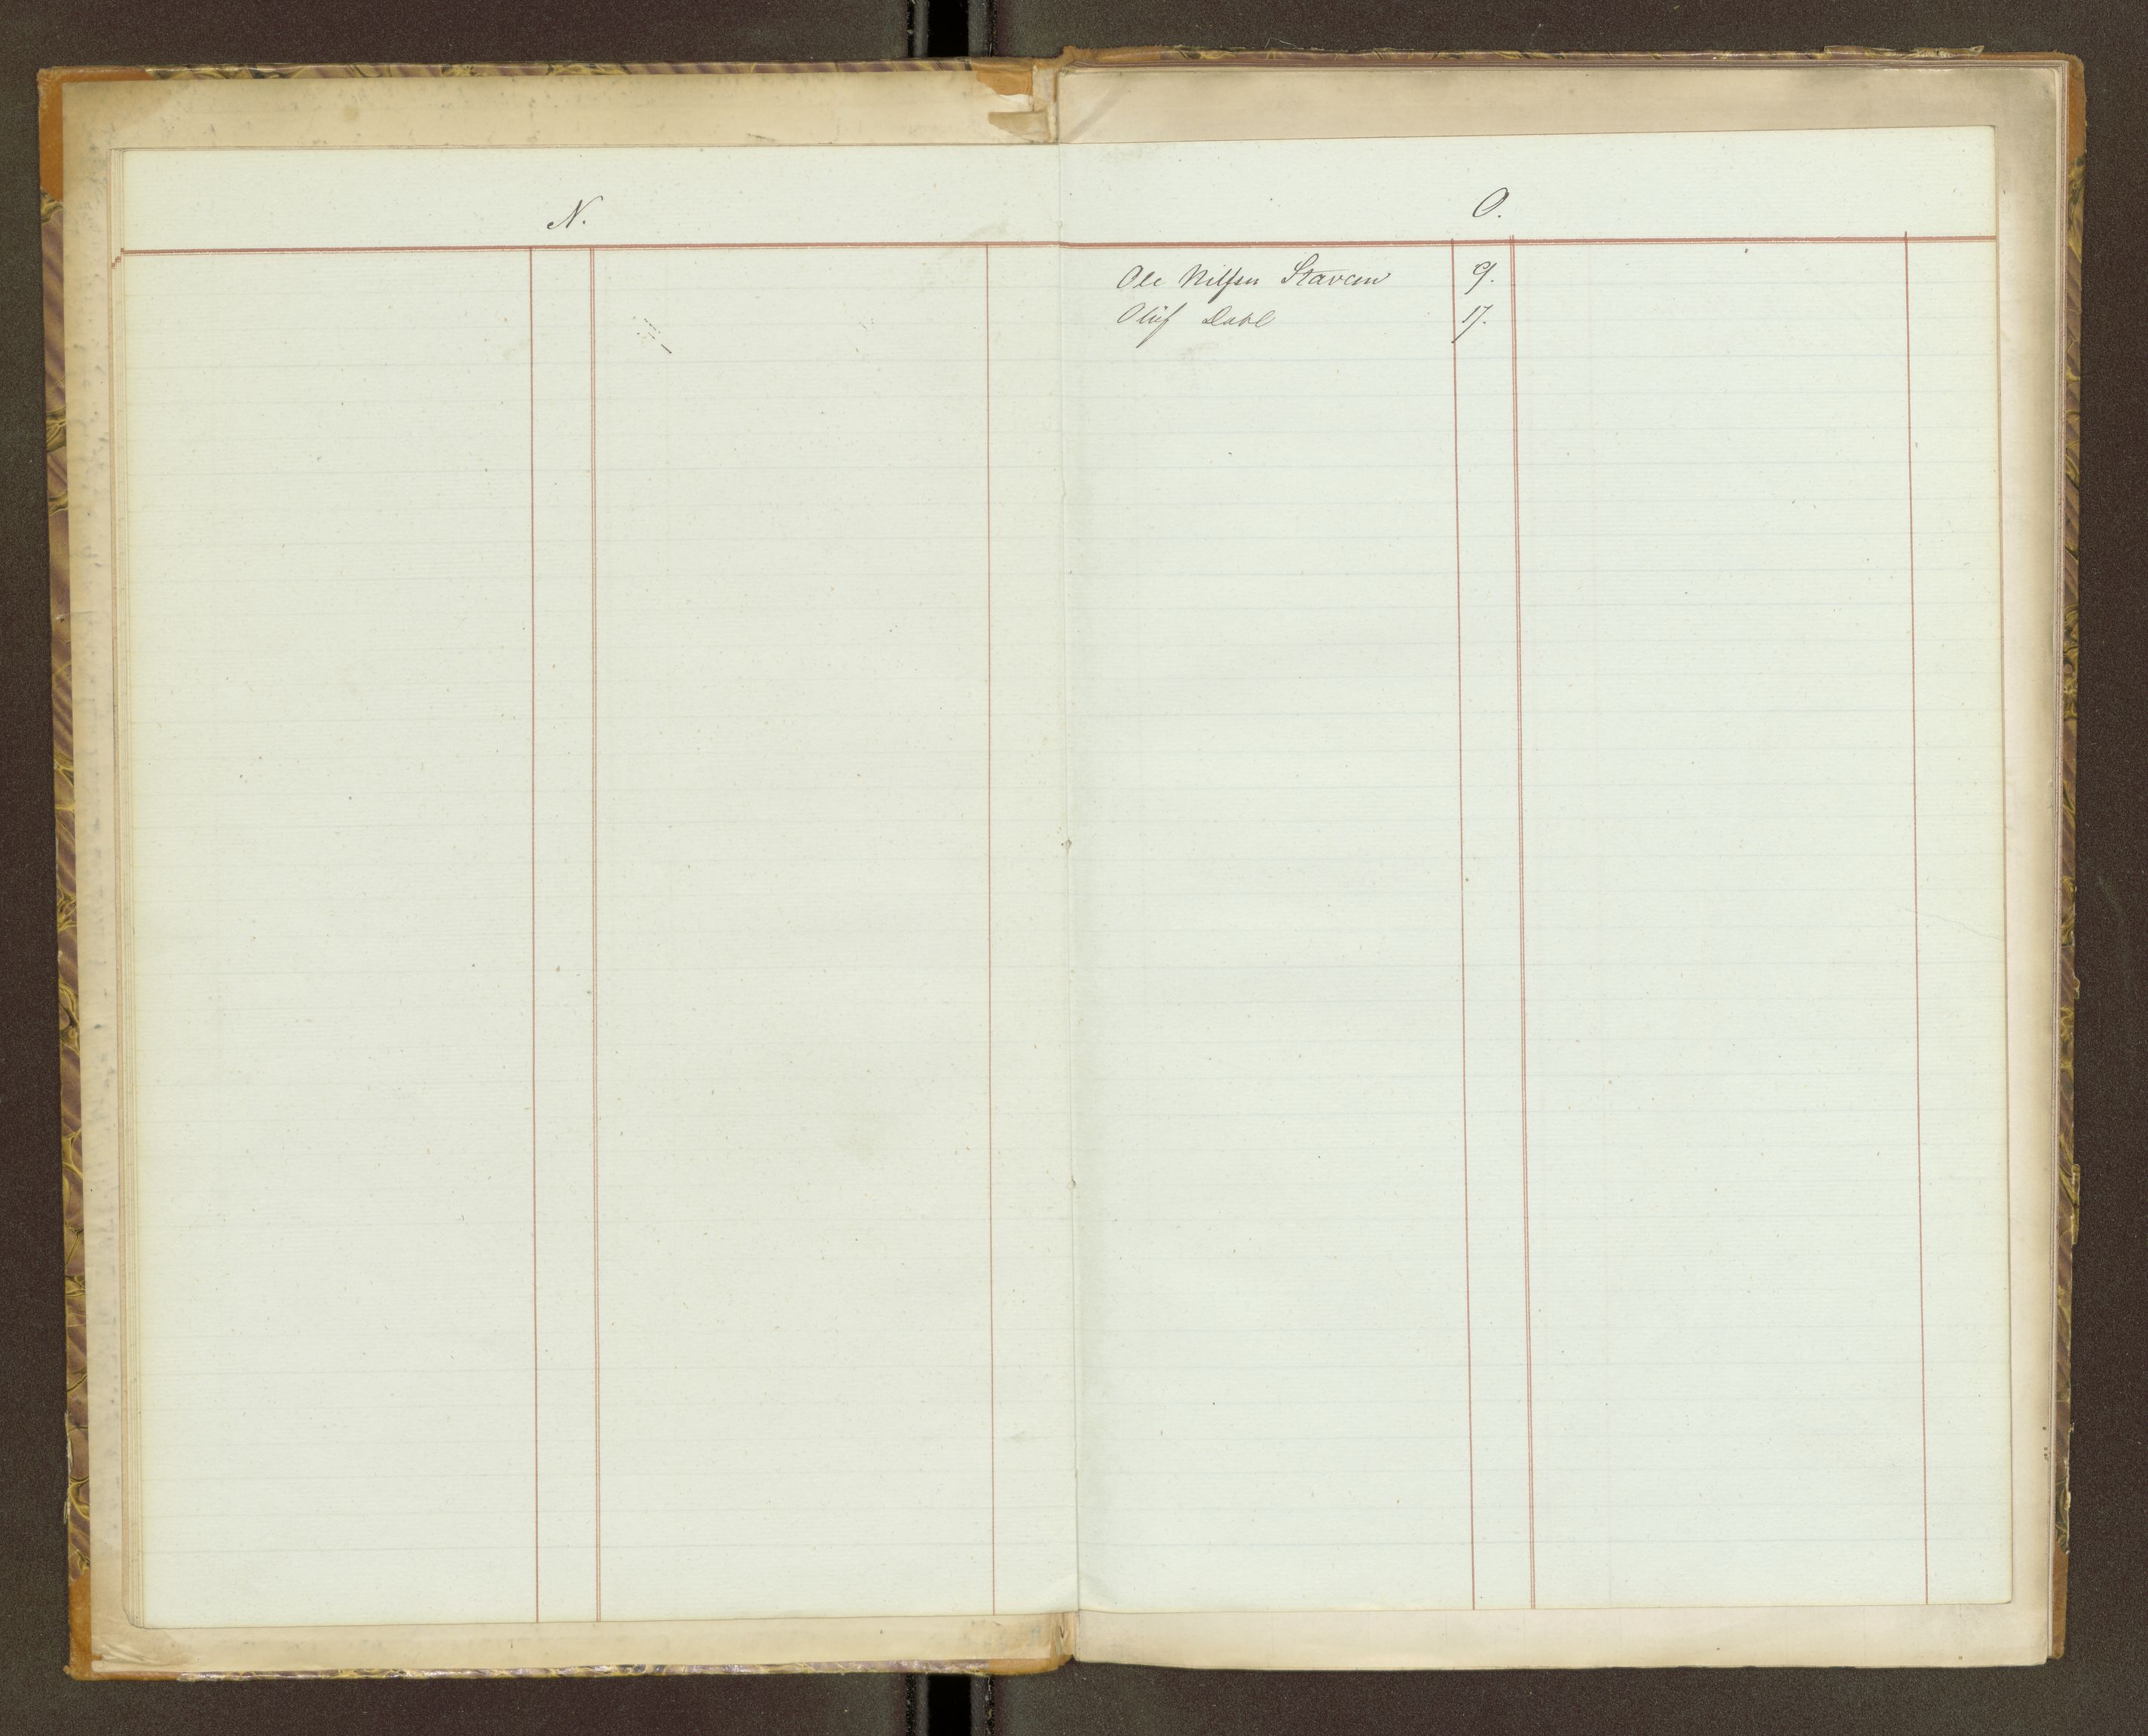 N.
O.
Ole Nilsen Stavem 9.
Oluf Dahl 17.